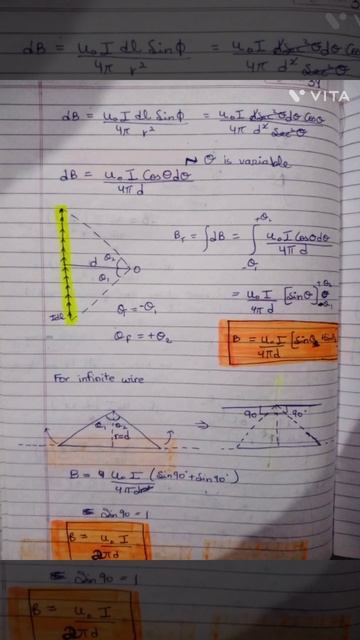 dB = u₀ I dl Sinφ / 4π r² = u₀ I d Sec²θ dθ Cosθ / 4π d² Sec²θ
VITA
dB = u₀ I dl Sinφ / 4π r² = u₀ I d Sec²θ dθ Cosθ / 4π d² Sec²θ
θ is variable
dB = u₀ I Cosθ dθ / 4π d
θ₂
d
O
θ₁
Idl
Bᵣ = ∫dB = ∫ +θ₂ -θ₁ u₀ I Cosθ dθ / 4π d
= u₀ I / 4π d [Sinθ] +θ₂ -θ₁
θᵢ = -θ₁
θf = +θ₂
B = u₀ I / 4πd [Sinθ₂
For infinite wire
θ₁ θ₂
r=d
⇒
90° 90°
B = u₀ I / 4πd (Sin90° + Sin90°)
Sin90 = 1
B = u₀ I / 2πd
Sin90 = 1
B = u₀ I / 2πd